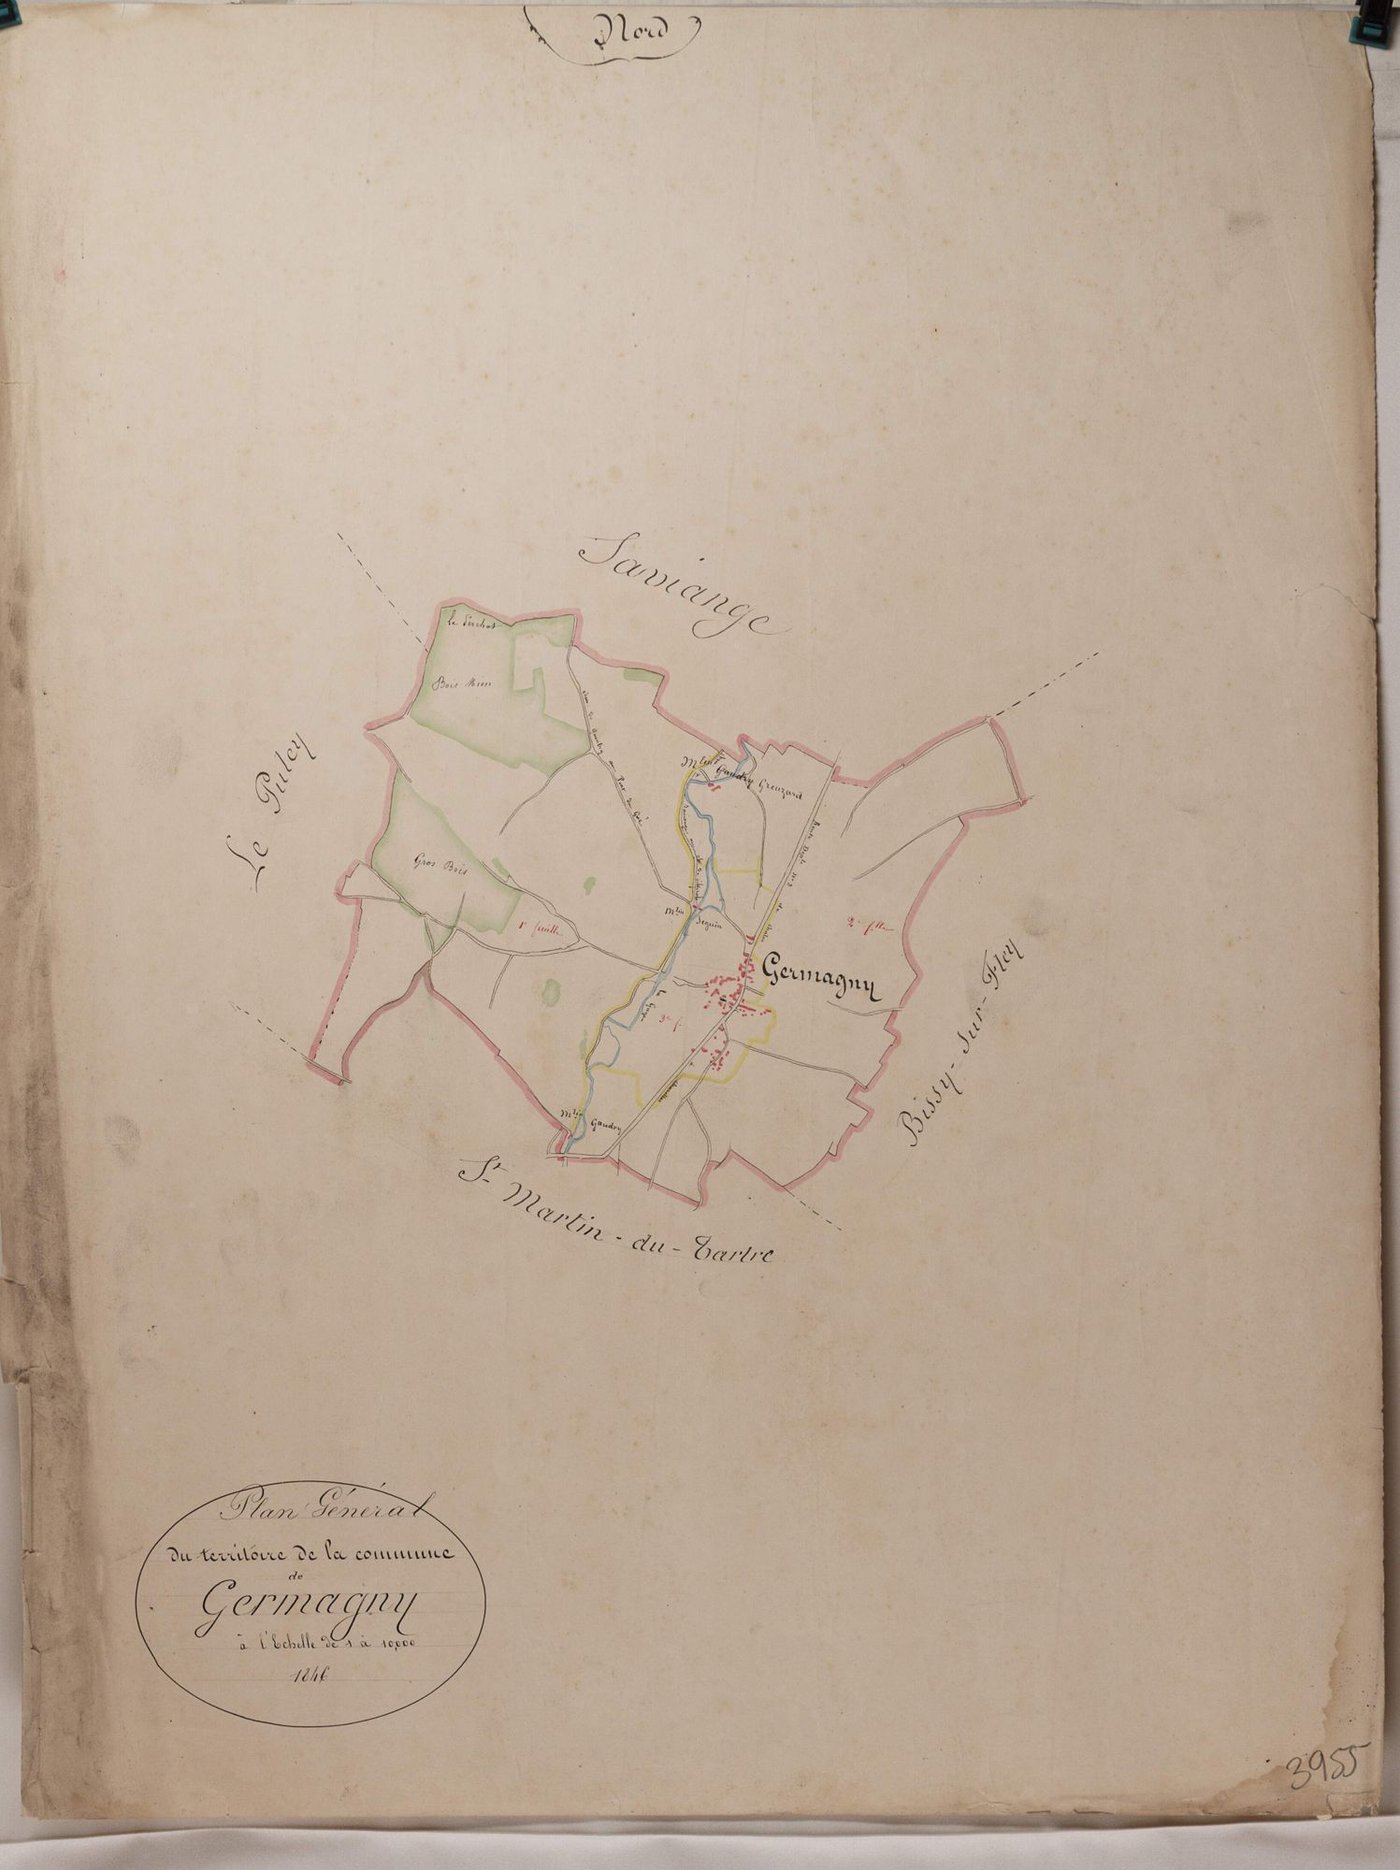 Nord
Saviange
Le Puley
Gros Bois
Mlin
Gaudry Greuzard
Mlin
Seguin
1re feuille
Germagny
Bissy-sur-Fley
Mlin
Gaudry
St Martin-du-Tartre
Plan Général
du territoire de la commune
de
Germagny
à l'Echelle de 1 à 10,000
1846
3955